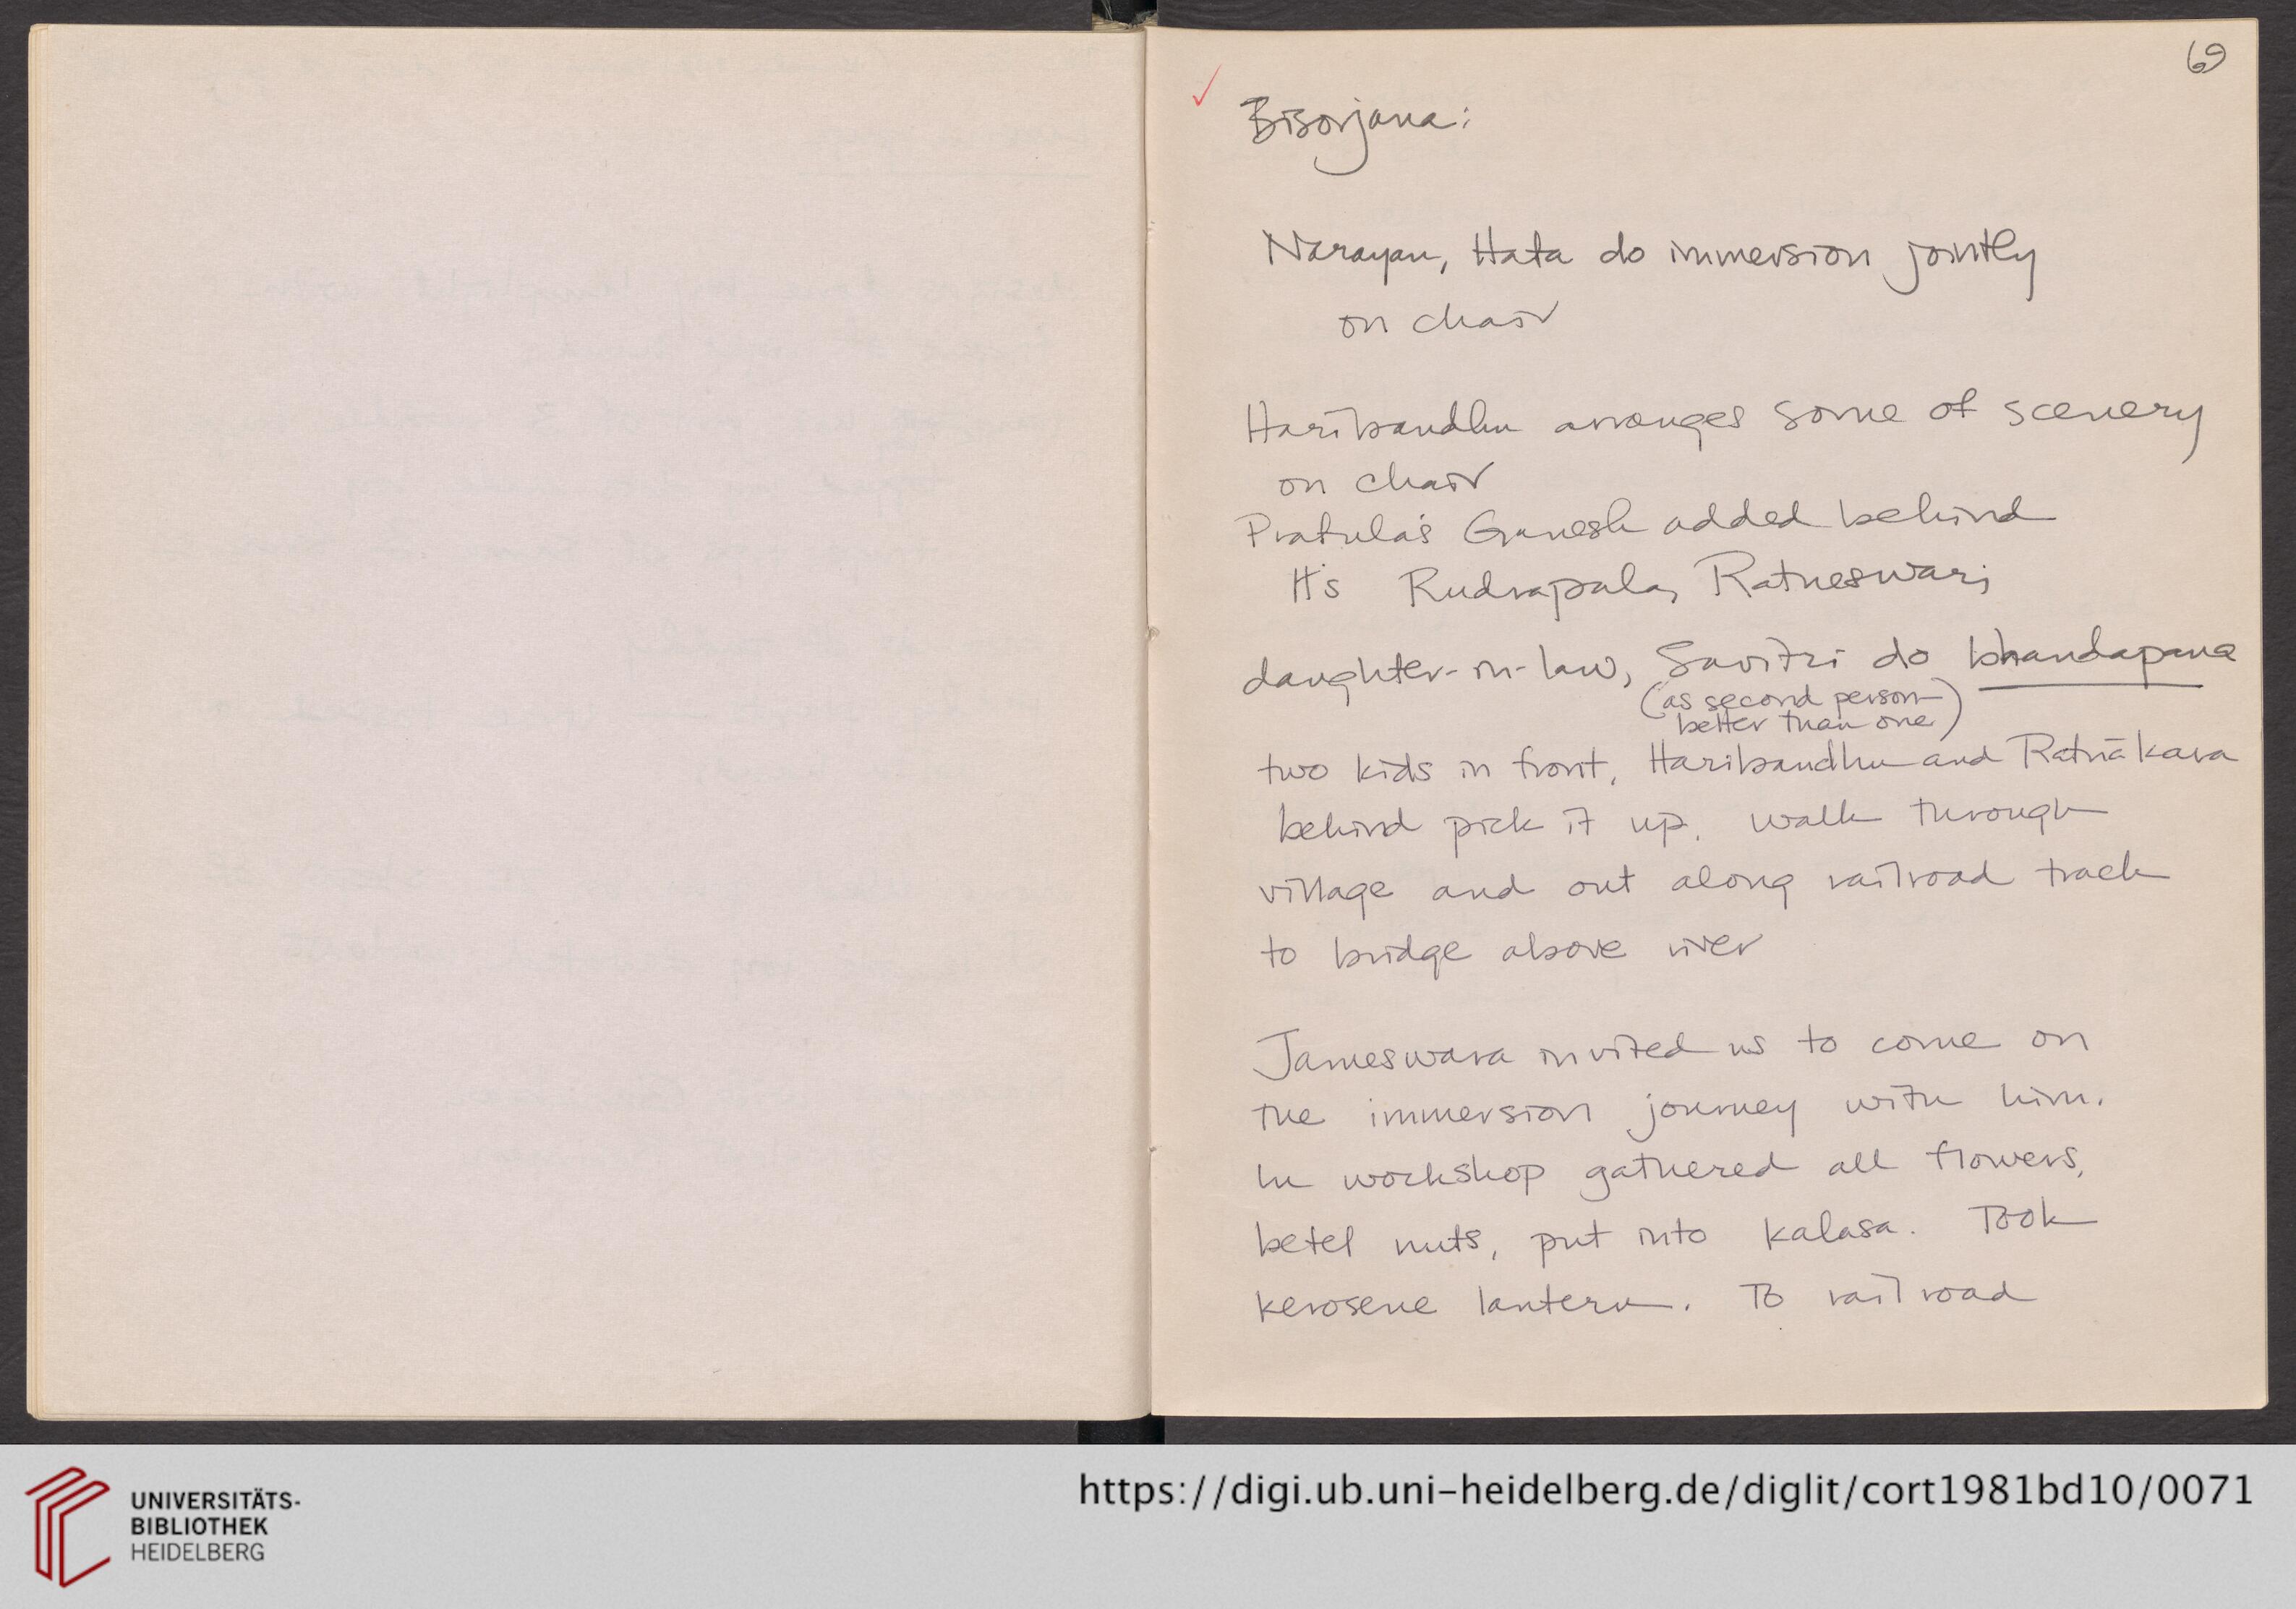 69
Bisorjana:
Narayan, Hata do immersion jointly
on chair
Haribandhu arranges some of scenery
on chair
Pratula's Ganesh added behind
H's Rudrapala, Ratneswari
daughter-in-law, Savitri do bhandapana
(as second person
better than one)
two kids in front, Haribandhu and Ratnākara
behind pick it up, walk through
village and out along railroad track
to bridge above river
Jameswara invited us to come on
the immersion journey with him.
In workshop gathered all flowers,
betel nuts, put into kalasa. Took
kerosene lantern. To railroad
UNIVERSITÄTS-
BIBLIOTHEK
HEIDELBERG
https://digi.ub.uni-heidelberg.de/diglit/cort1981bd10/0071